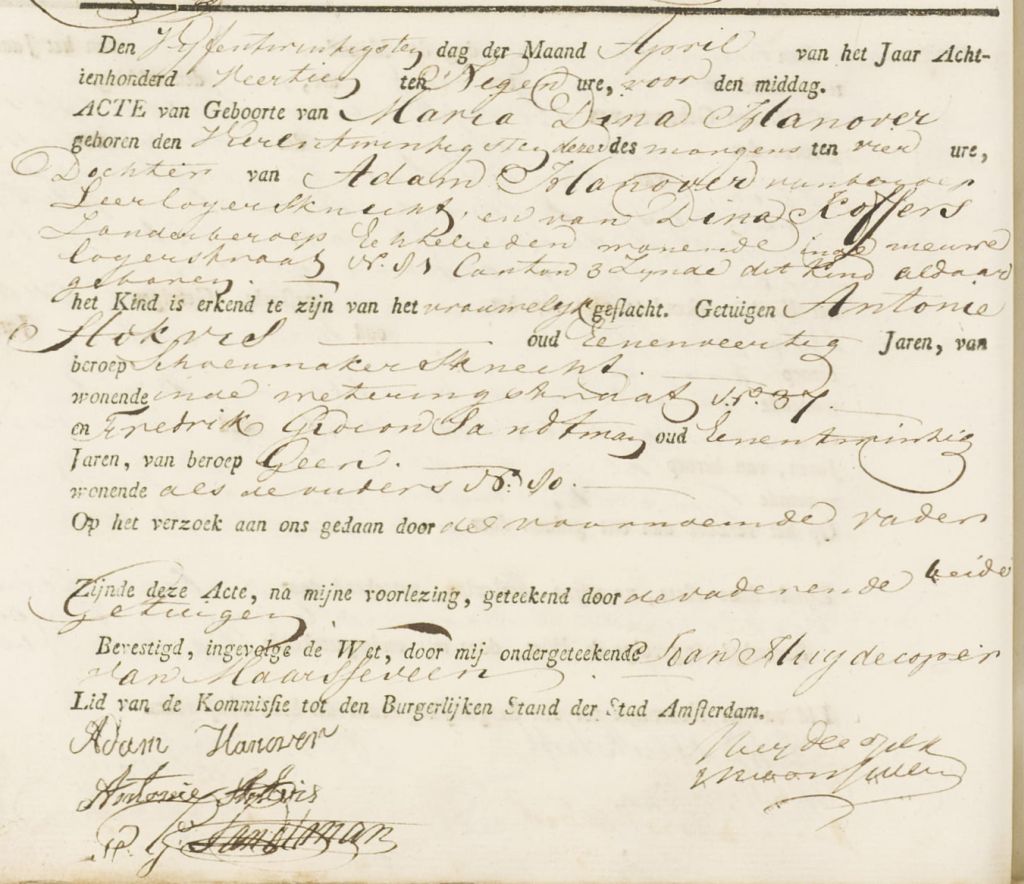 Den Vyfentwintigsten dag der Maand April van het Jaar Acht-
ienhonderd Veertien ten Negen ure, voor den middag.
ACTE van Geboorte van Maria Dina Hanover
geboren den Vierentwintigsten dezer des morgens ten vier ure,
Dochter van Adam Hanover van beroep
Leerloyersknecht, en van Dina Koffers
Zonder beroep Echtelieden wonende in de nieuwe
loyerstraat N. Canton 3 Zynde dit kind aldaar
geboren.
het Kind is erkend te zijn van het vrouwelyk geslacht. Getuigen Antonie
Stokvis oud Eenenveertig Jaren, van
beroep Schoenmakersknecht.
wonende in de weteringstraat N. 37.
en Fredrik Gideon Sandtman oud Eenentwintig
Jaren, van beroep Geen.
wonende als de ouders N.
Op het verzoek aan ons gedaan door de voornoemde vader
Zijnde deze Acte, na mijne voorlezing, geteekend door de vader ende beide
Getuigen
Bevestigd, ingevolge de Wet, door mij ondergeteekende Joan Huydecoper
van Maarsseveen
Lid van de Kommissie tot den Burgerlijken Stand der Stad Amsterdam.
Adam Hanover
Antonie Stokvis
Sandtman